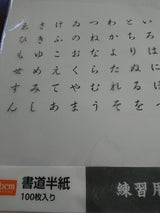 いろはにほへ
とちりぬるを
わかよたれそ
つねならむう
ゐのおくやま
けふこえてあ
さきゆめみし
ゑひもせすん
bcm
書道半紙
100枚入り
練習用